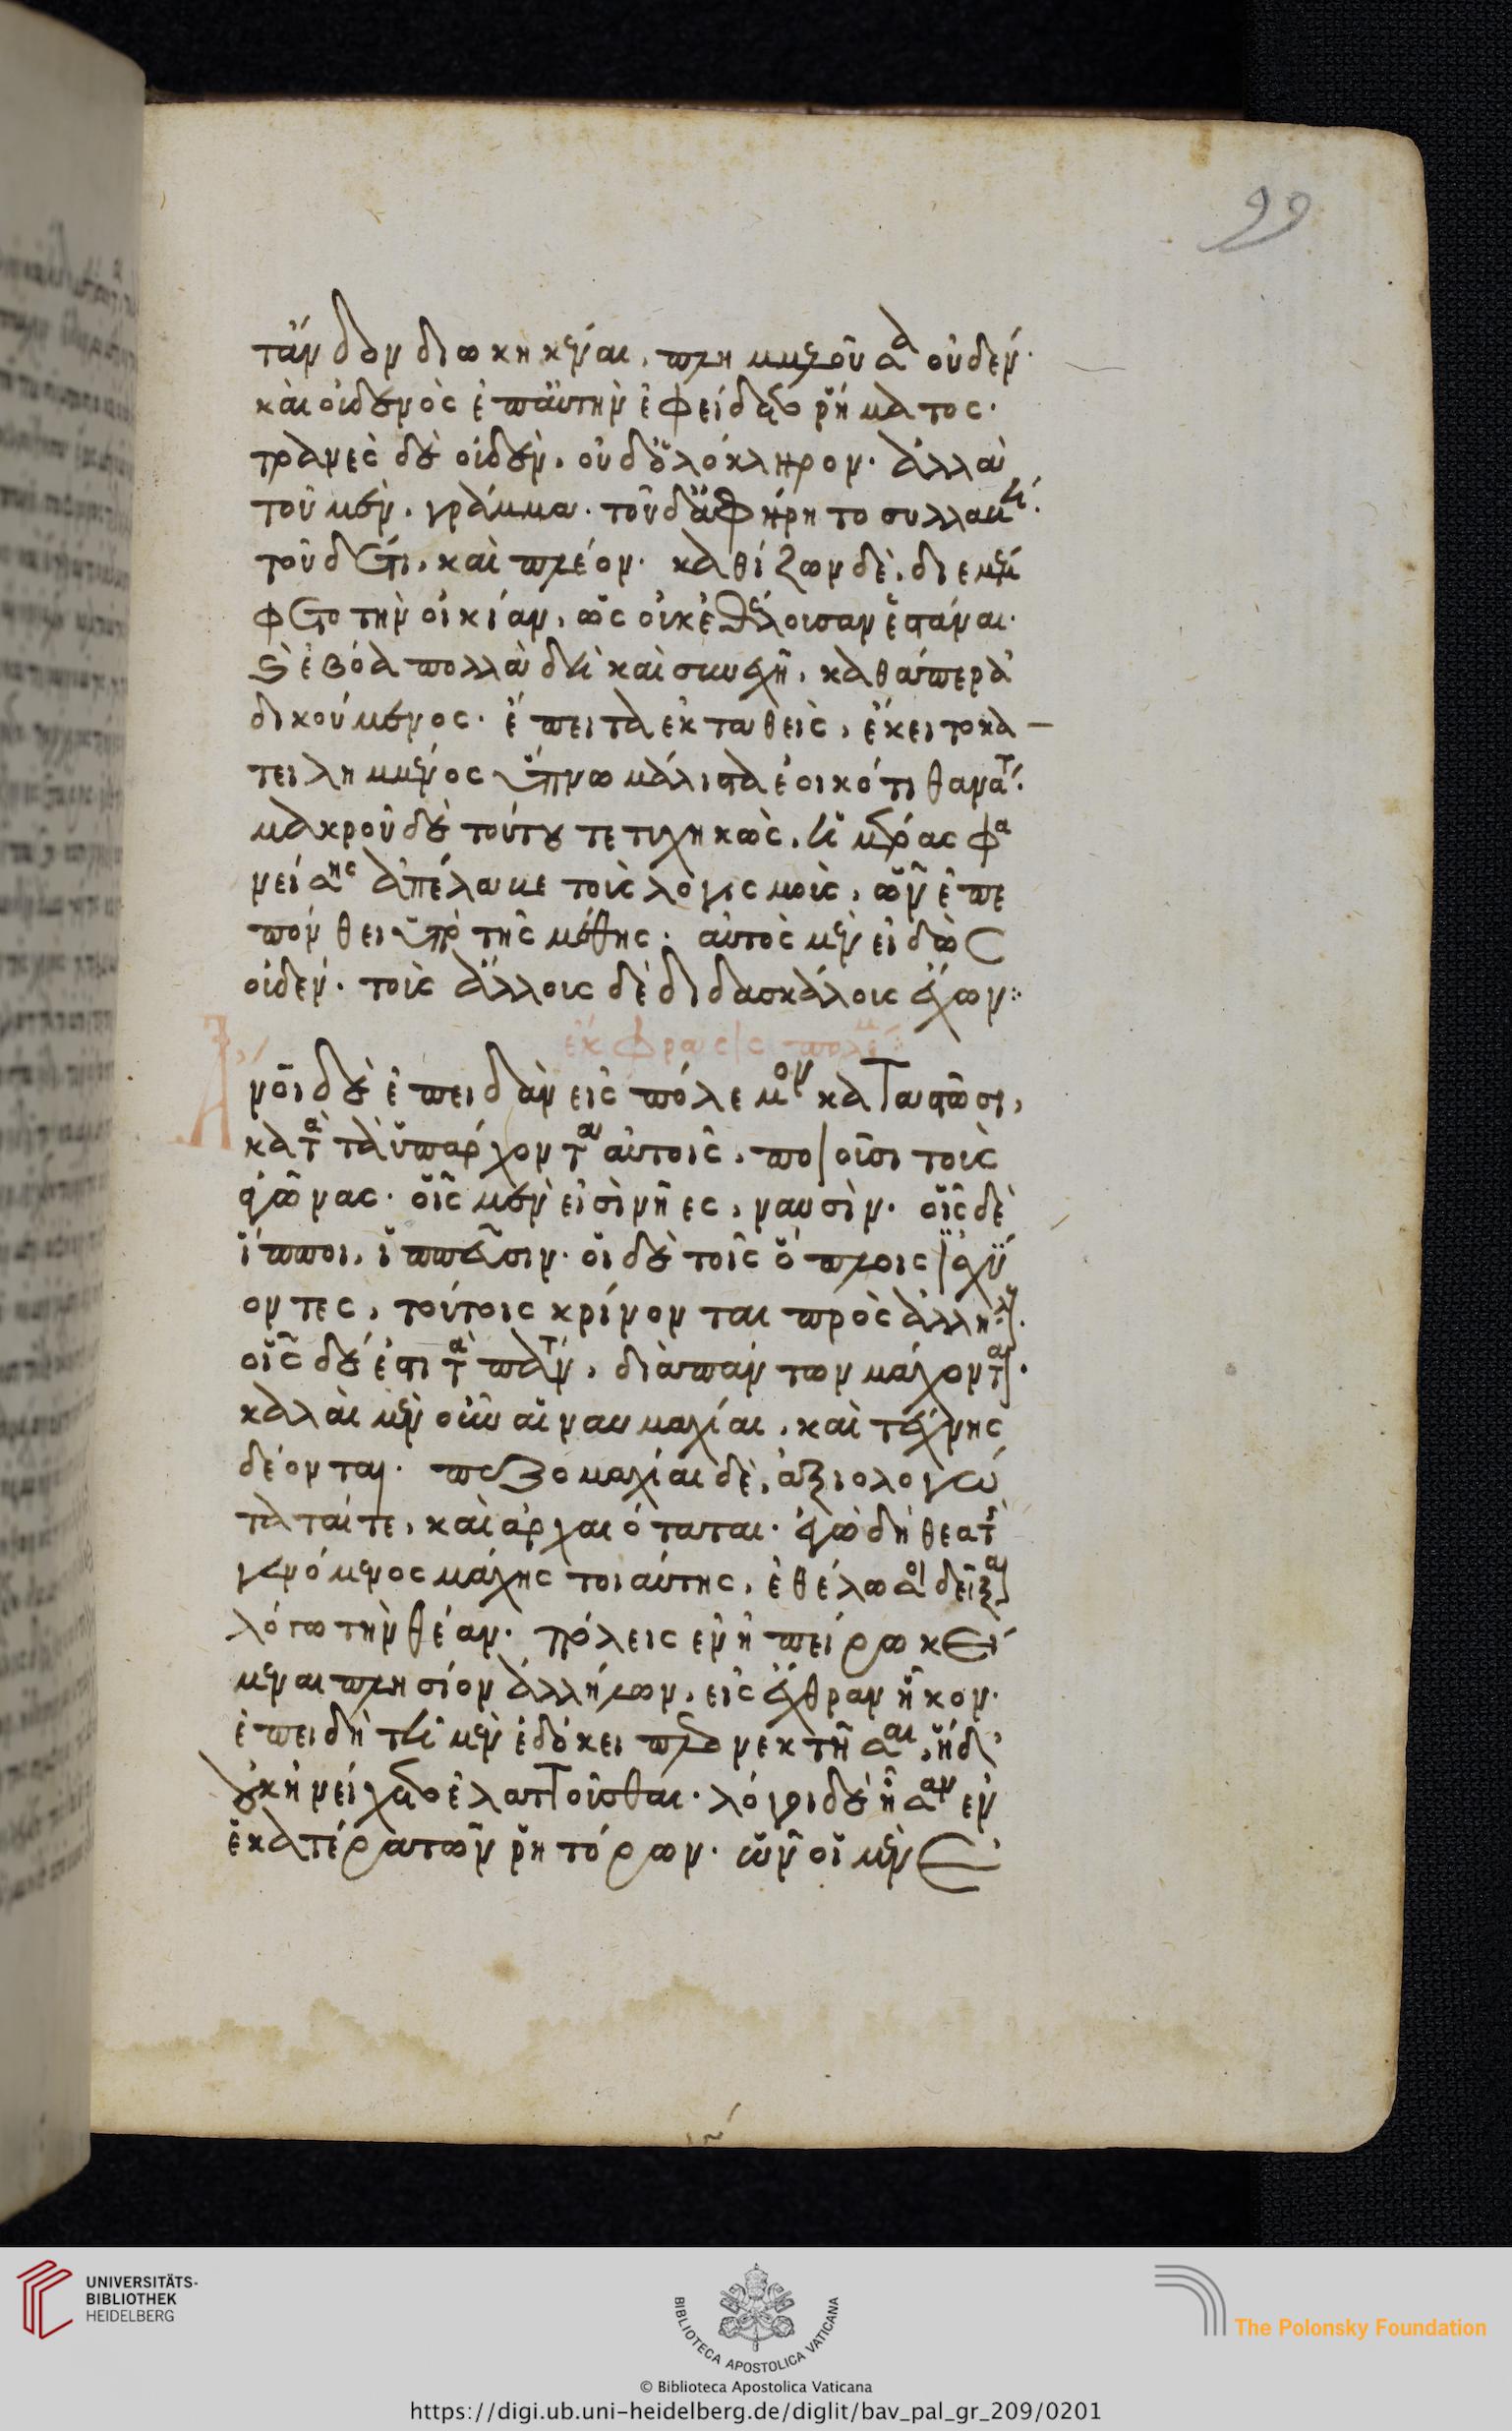 99
τἄνδον διωκηκέναι, πλημμελοῦντα δ' οὐδέν·
καὶ οὐδενὸς ἐπ' αὐτὴν ἐφείδετο ῥήματος·
τρανὲς δὲ οὐδὲν, οὐδ' ὁλόκληρον· ἀλλὰ
τοῦ μὲν, γράμμα· τοῦ δ' ἀφῄρητο συλλαβή·
τοῦ δ' ἔτι, καὶ πλέον· καθίζων δὲ, διεμέμ
φετο τὴν οἰκίαν, ὡς οὐκ ἐθέλουσαν ἑστάναι·
καὶ ἐβόα πολλὰ δὴ καὶ συνεχῆ, καθάπερ ἀ
δικούμενος· ἔπειτα ἐκταθεὶς, ἔκειτο κα
τειλημμένος ὕπνω μάλιστα ἐοικότι θανάτω·
μακροῦ δὲ τούτου τετυχηκὼς, ἡμέρας φα
νείσης ἀπέλαυσε τοῖς λογισμοῖς, ὧν ἐπε
πόνθει ὑπὸ τῆς μέθης· αὐτὸς μὲν εἰδὼς
οὐδέν· τοῖς ἄλλοις δὲ διδασκάλοις ἔχων:
ἔκφρασις πολέμου:
Ἄνοι δὲ ἐπειδὰν εἰς πόλεμον καταστῶσι,
κατὰ τὰ ὑπάρχοντα αὐτοῖς, ποιοῦσι τοὺς
ἀγῶνας· οἷς μὲν εἰσὶ νῆες, ναυσίν· οἷς δὲ
ἵπποι, ἱππεῦσιν· οἱ δὲ τοῖς ὅπλοις ἰσχύ
οντες, τούτοις κρίνονται πρὸς ἀλλήλους·
οἷς δέ ἐστι τὰ πάντα, διὰ πάντων μάχονται·
καλαὶ μὲν οὖν αἱ ναυμαχίαι, καὶ τέχνης
δέονται· πεζομαχίαι δὲ, ἀξιολογώ
ταταί τε, καὶ ἀρχαιόταται· ἐγὼ δὴ θεατὴς
γενόμενος μάχης τοιαύτης, ἐθέλω σοι δεῖξαι
λόγω τὴν θέαν· πόλεις ἐν ἠπείρω κεί
μεναι πλησίον ἀλλήλων, εἰς ἔχθραν ἧκον·
ἐπειδὴ τῆ μὲν ἐδόκει πλεονεκτῆσαι, ἡ δ'
οὐκ ἠνείχετο ἐλαττοῦσθαι· λόγοι δὲ ἦσαν ἐν
ἑκατέρα τῶν ῥητόρων· ὧν οἱ μὲν ἐ
UNIVERSITÄTS-
BIBLIOTHEK
HEIDELBERG
BIBLIOTECA APOSTOLICA VATICANA
The Polonsky Foundation
© Biblioteca Apostolica Vaticana
https://digi.ub.uni-heidelberg.de/diglit/bav_pal_gr_209/0201